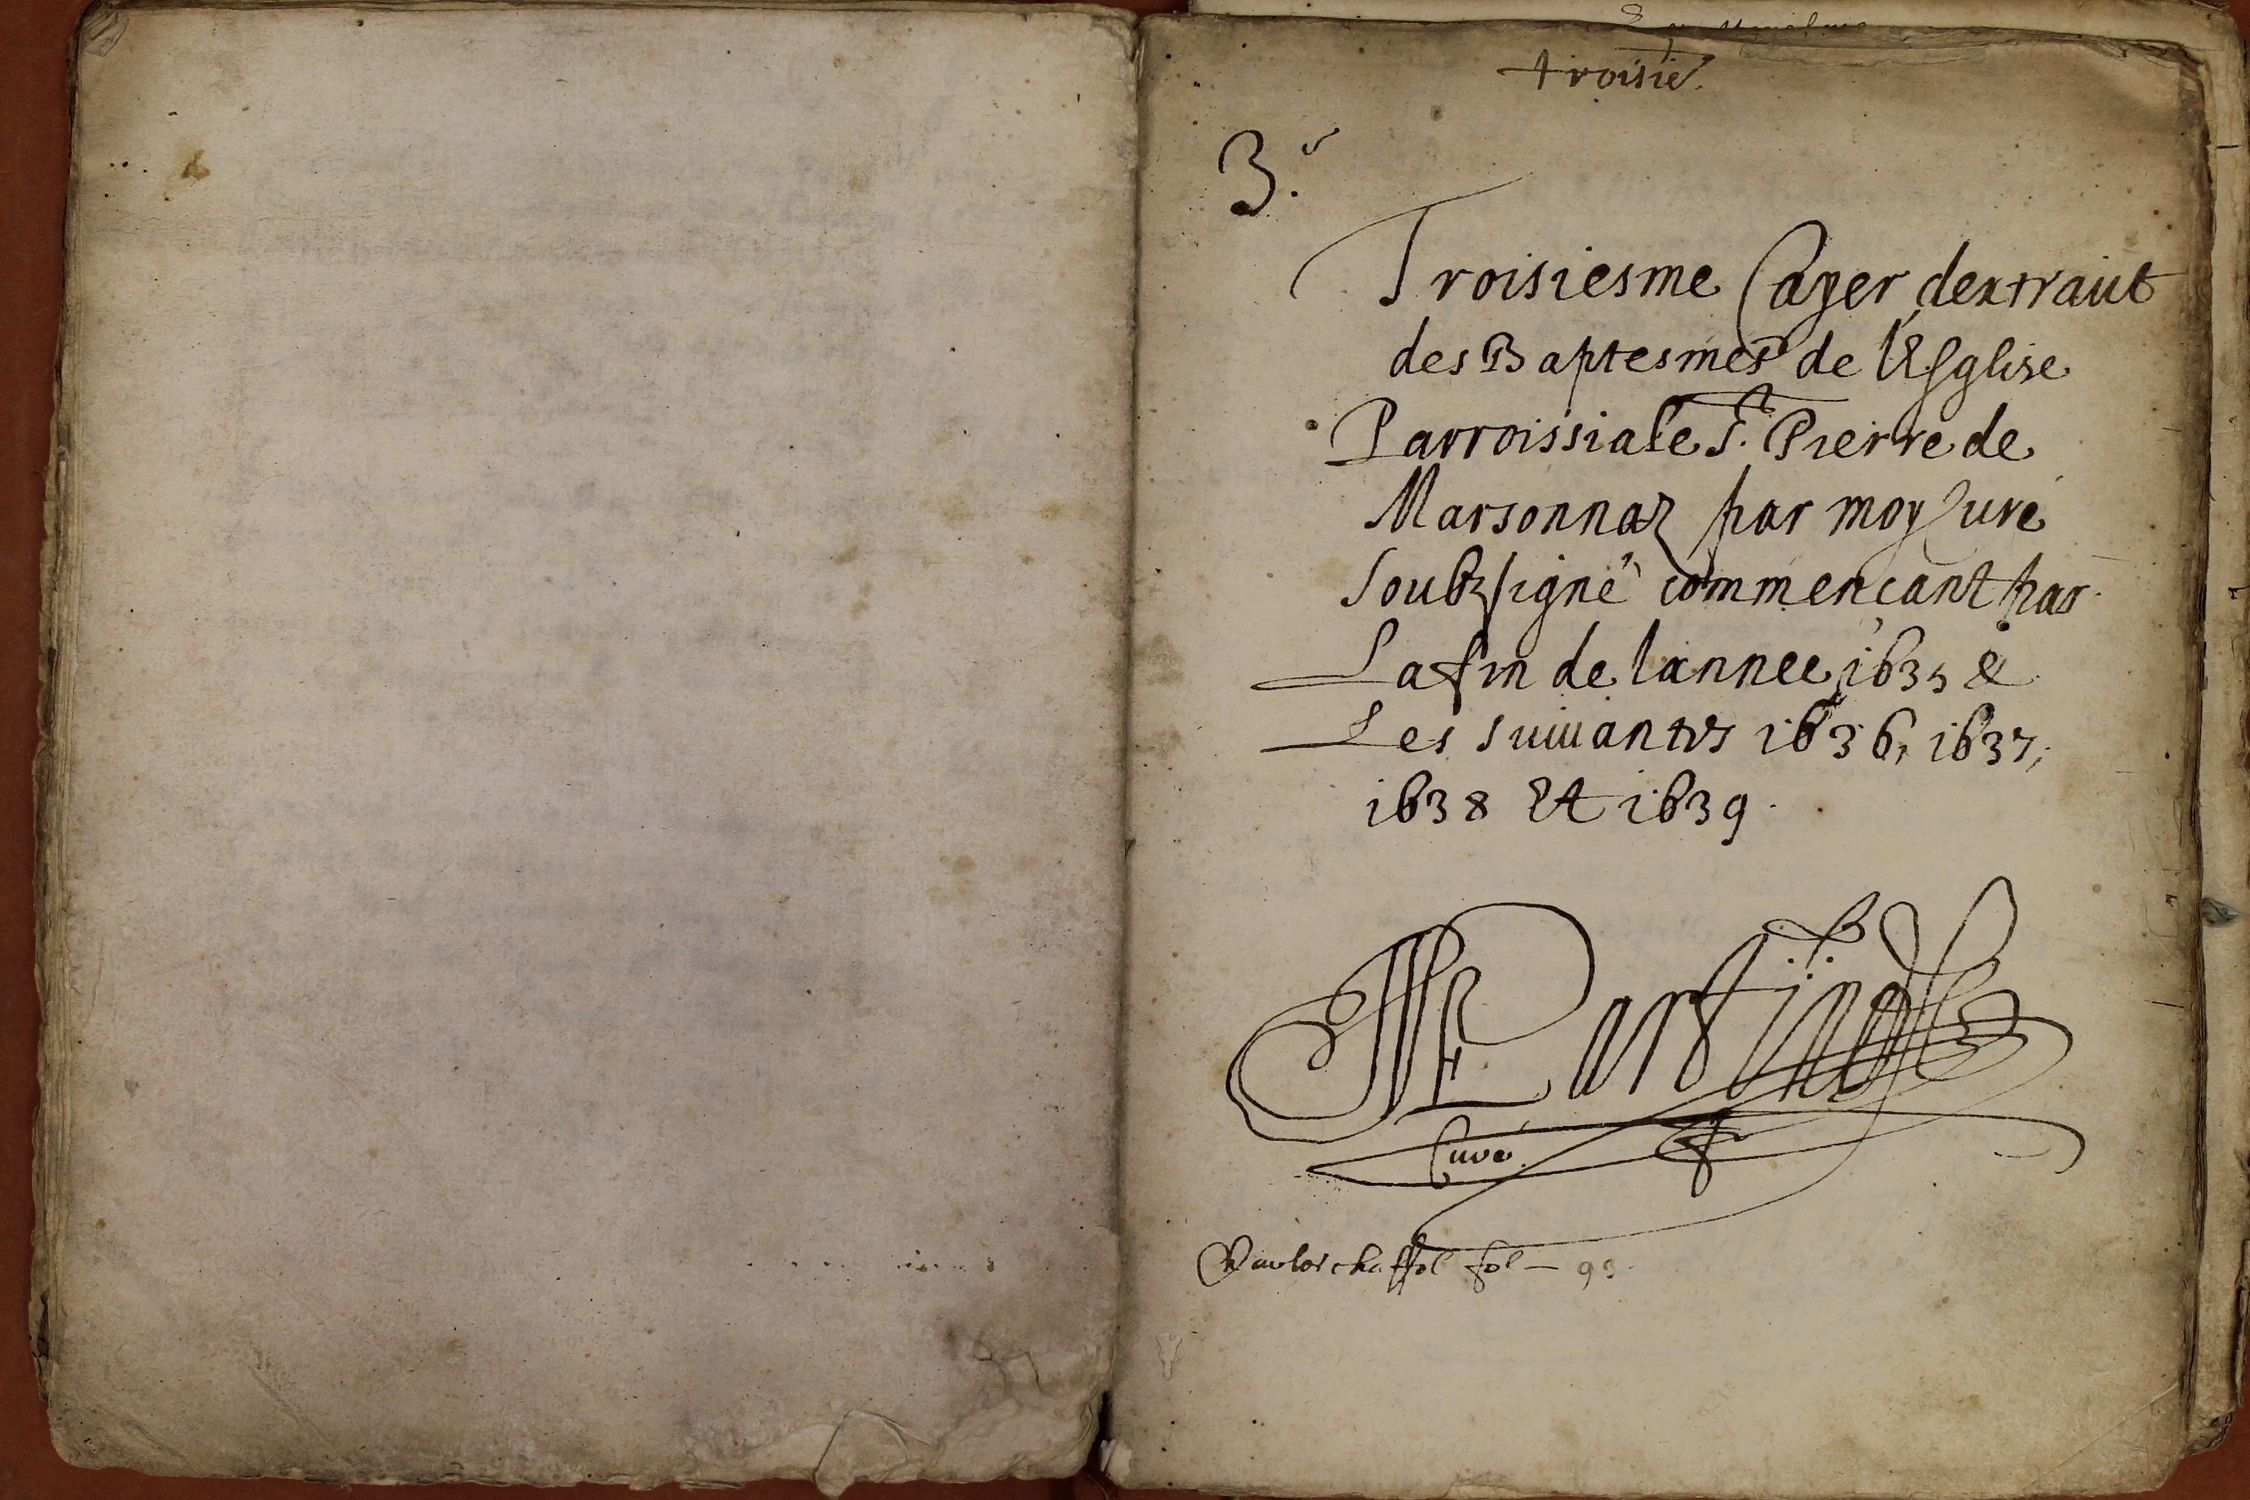 troisie.
3.e
Troisiesme Cayer dextraict
des Baptesmes de lEsglise
Parroissiale St. Pierre de
Marsonnaz par moy Curé
soubzsigné commencant par
La fin de lannee 1635 &
Les suiuantes 1636, 1637,
1638 Et 1639.
Curé.
fol - 93